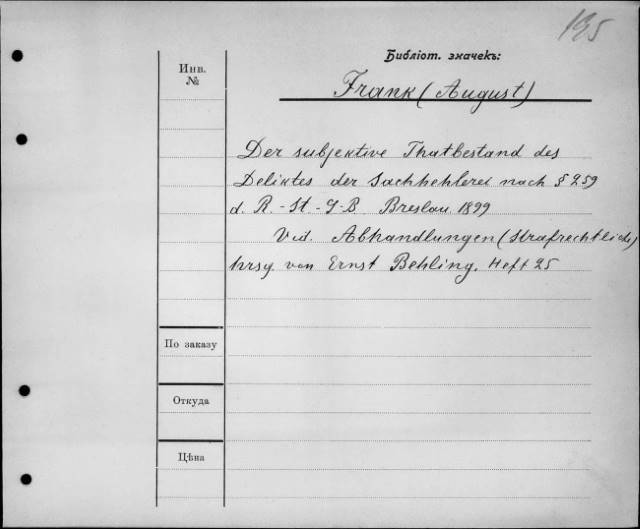 195
Библіот. значекъ:
Инв.
№
Frank (August)
Der subjektive Thatbestand des
Deliktes der Sachhehlerei nach § 259
d. R.-St.-G-B. Breslau. 1899
Vid. Abhandlungen (Strafrechtliche)
hrsg. von Ernst Behling. Heft 25
По заказу
Откуда
Цѣна